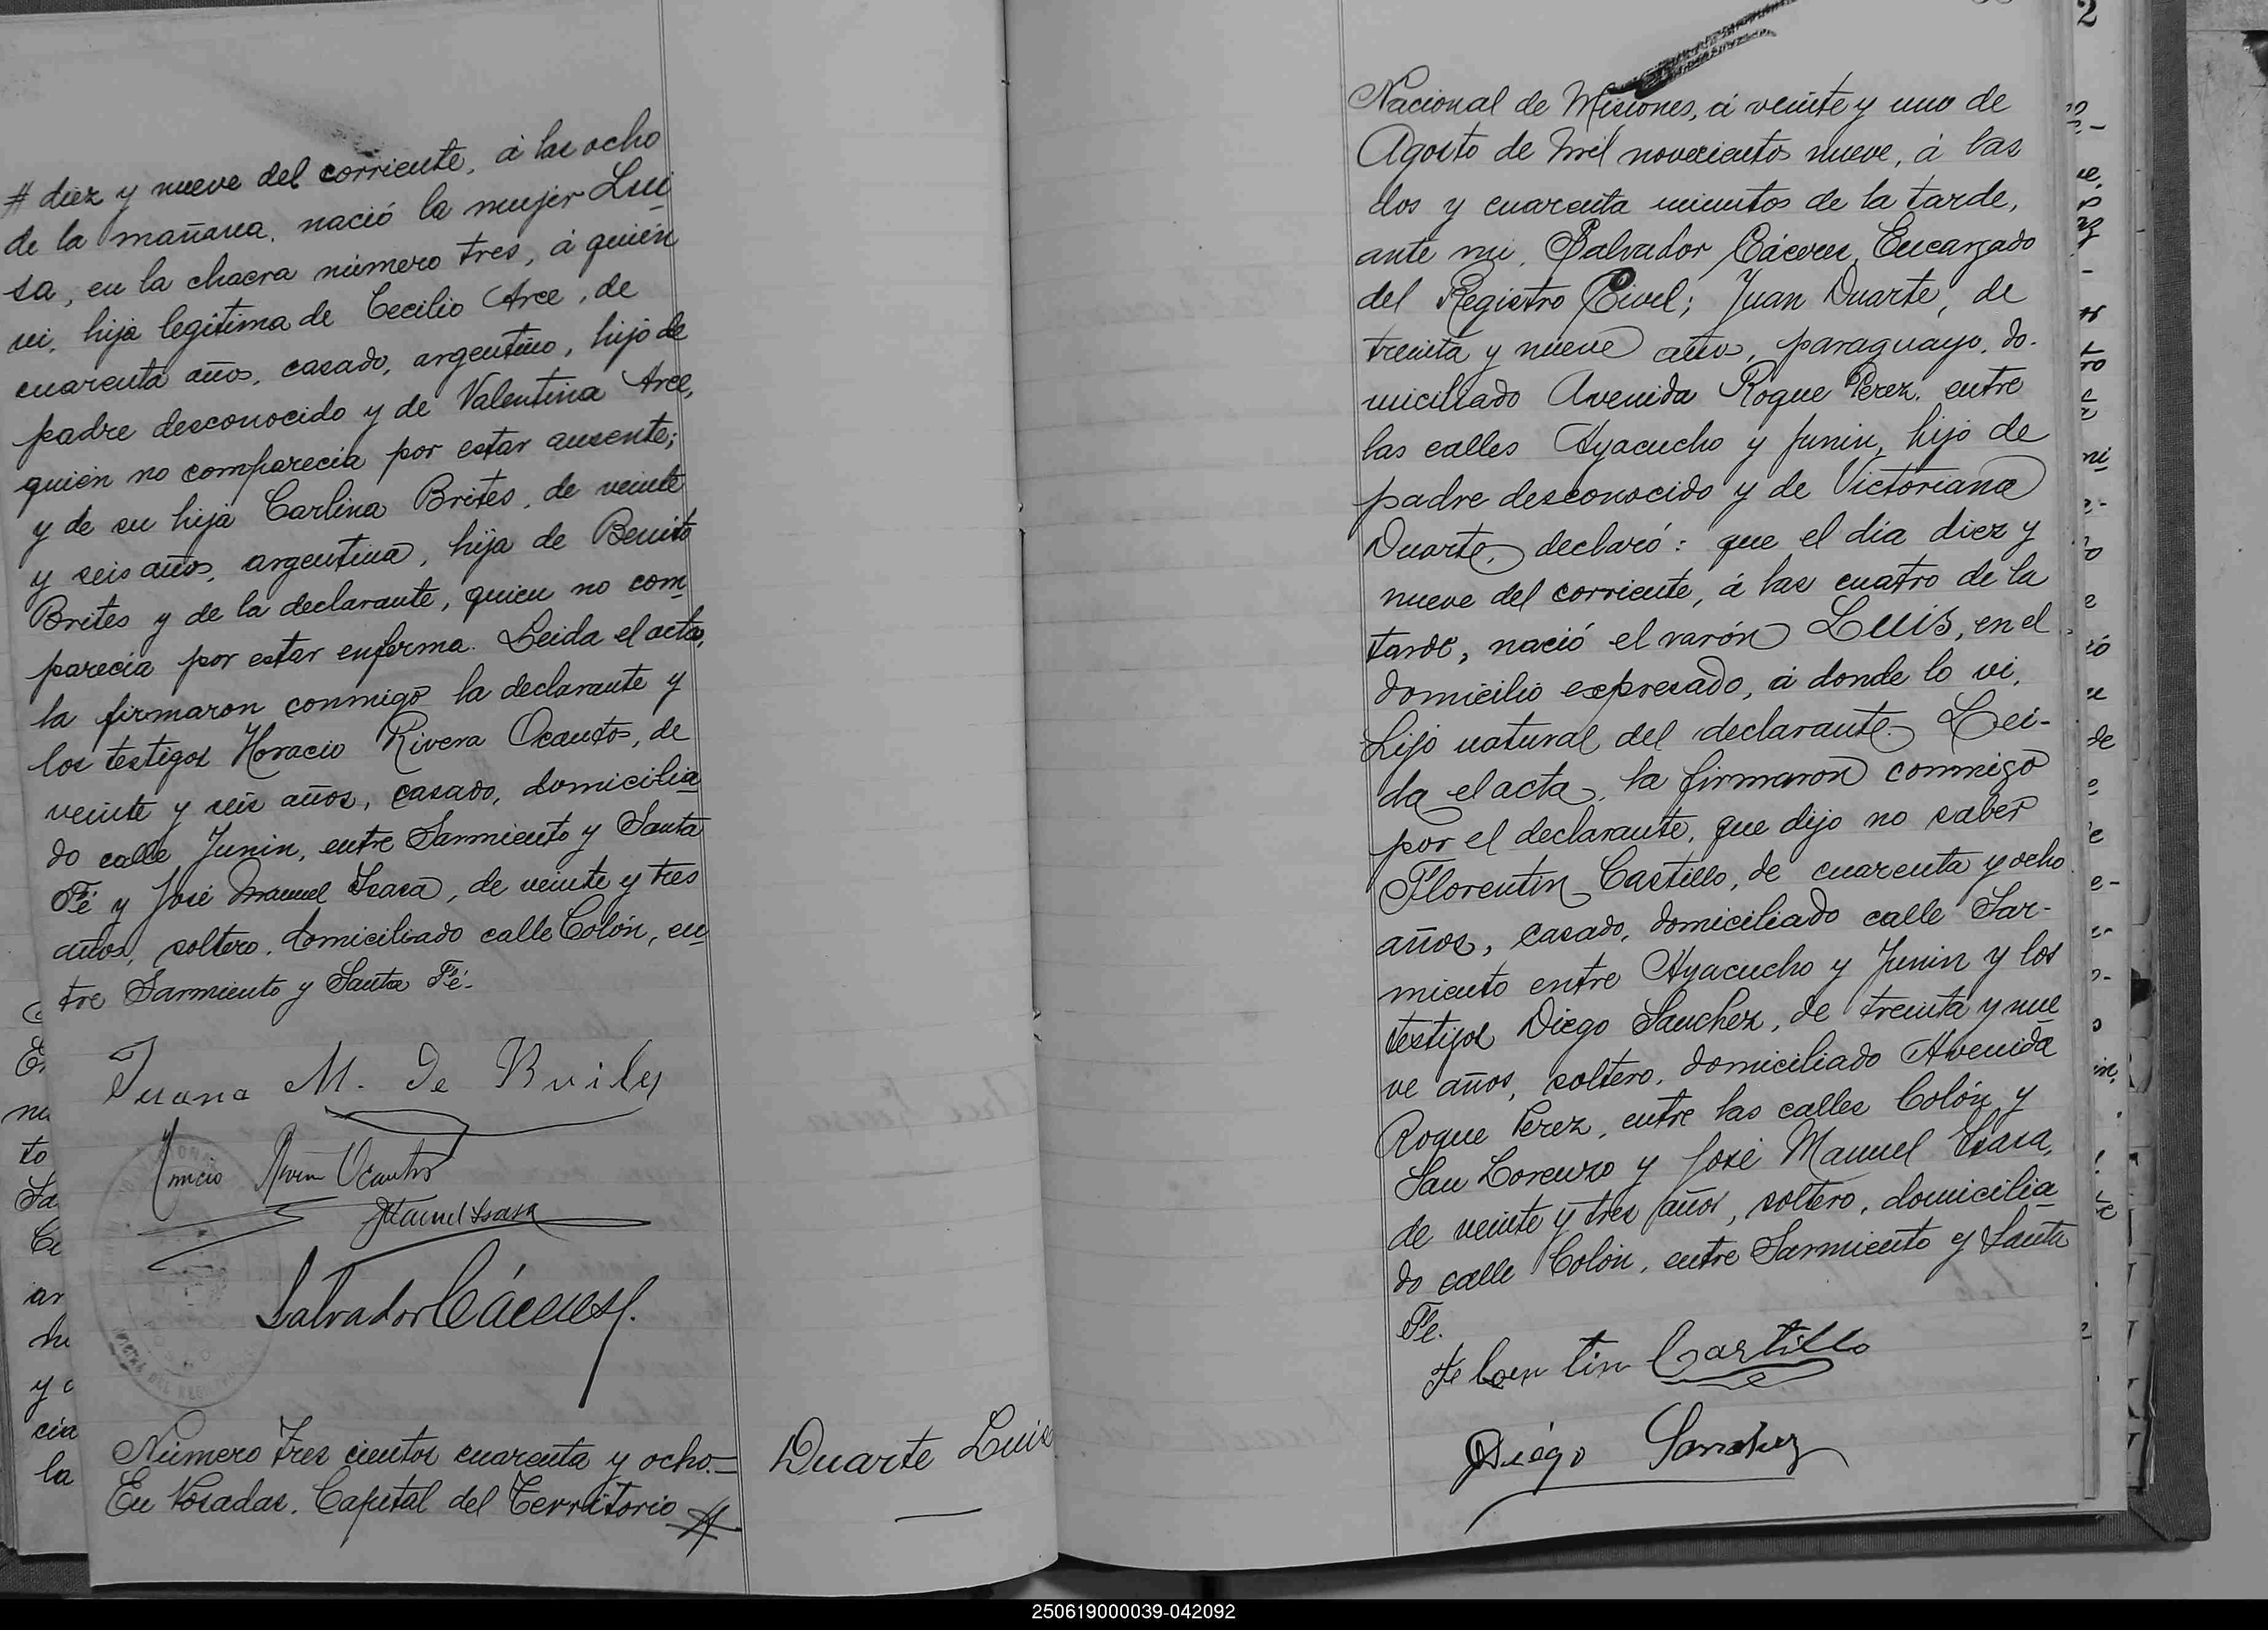 # diez y nueve del corriente, á las ocho
de la mañana, nació la mujer Lui
sa, en la chacra número tres, á quién
vi, hija legítima de Cecilio Arce, de
cuarenta años, casado, argentino, hijo de
padre desconocido y de Valentina Arce,
quién no comparecia por estar ausente;
y de su hija Carlina Brites, de veinte
y seis años, argentina, hija de Benito
Brites y de la declarante, quien no com
parecia por estar enferma. Leida el acta,
la firmaron conmigo la declarante y
los testigos Horacio Rivera Ocantos, de
veinte y seis años, casado, domicilia
do calle Junin, entre Sarmiento y Santa
Fé y José Manuel Isasa, de veinte y tres
años, soltero, domiciliado calle Colón, en
tre Sarmiento y Santa Fé.
Juana M. De
Ocantos
JManuel Isasa
Salvador Cáceres
Número tres cientos cuarenta y ocho.—
En Posadas, Capital del Territorio #
Duarte Luis
Nacional de Misiones, á veinte y uno de
Agosto de mil novecientos nueve, á las
dos y cuarenta minutos de la tarde,
ante mi, Salvador Cáceres, Encargado
del Registro Civil; Juan Duarte, de
treinta y nueve años, paraguayo, do-
miciliado Avenida Roque Perez, entre
las calles Ayacucho y Junin, hijo de
padre desconocido y de Victoriana
Duarte, declaró: que el dia diez y
nueve del corriente, á las cuatro de la
tarde, nació el varón Luis, en el
domicilio expresado, á donde lo vi,
hijo natural del declarante. Lei-
da el acta, la firmaron conmigo
por el declarante, que dijo no saber
Florentin Castillo, de cuarenta y ocho
años, casado, domiciliado calle Sar-
miento entre Ayacucho y Junin y los
testigos Diego Sanchez, de treinta y nue
ve años, soltero, domiciliado Avenida
Roque Perez, entre las calles Colón y
San Lorenzo y José Manuel Isasa,
de veinte y tres años, soltero, domicilia
do calle Colón, entre Sarmiento y Santa
Fe.
Castillo
Diego Sanchez
2
250619000039-042092